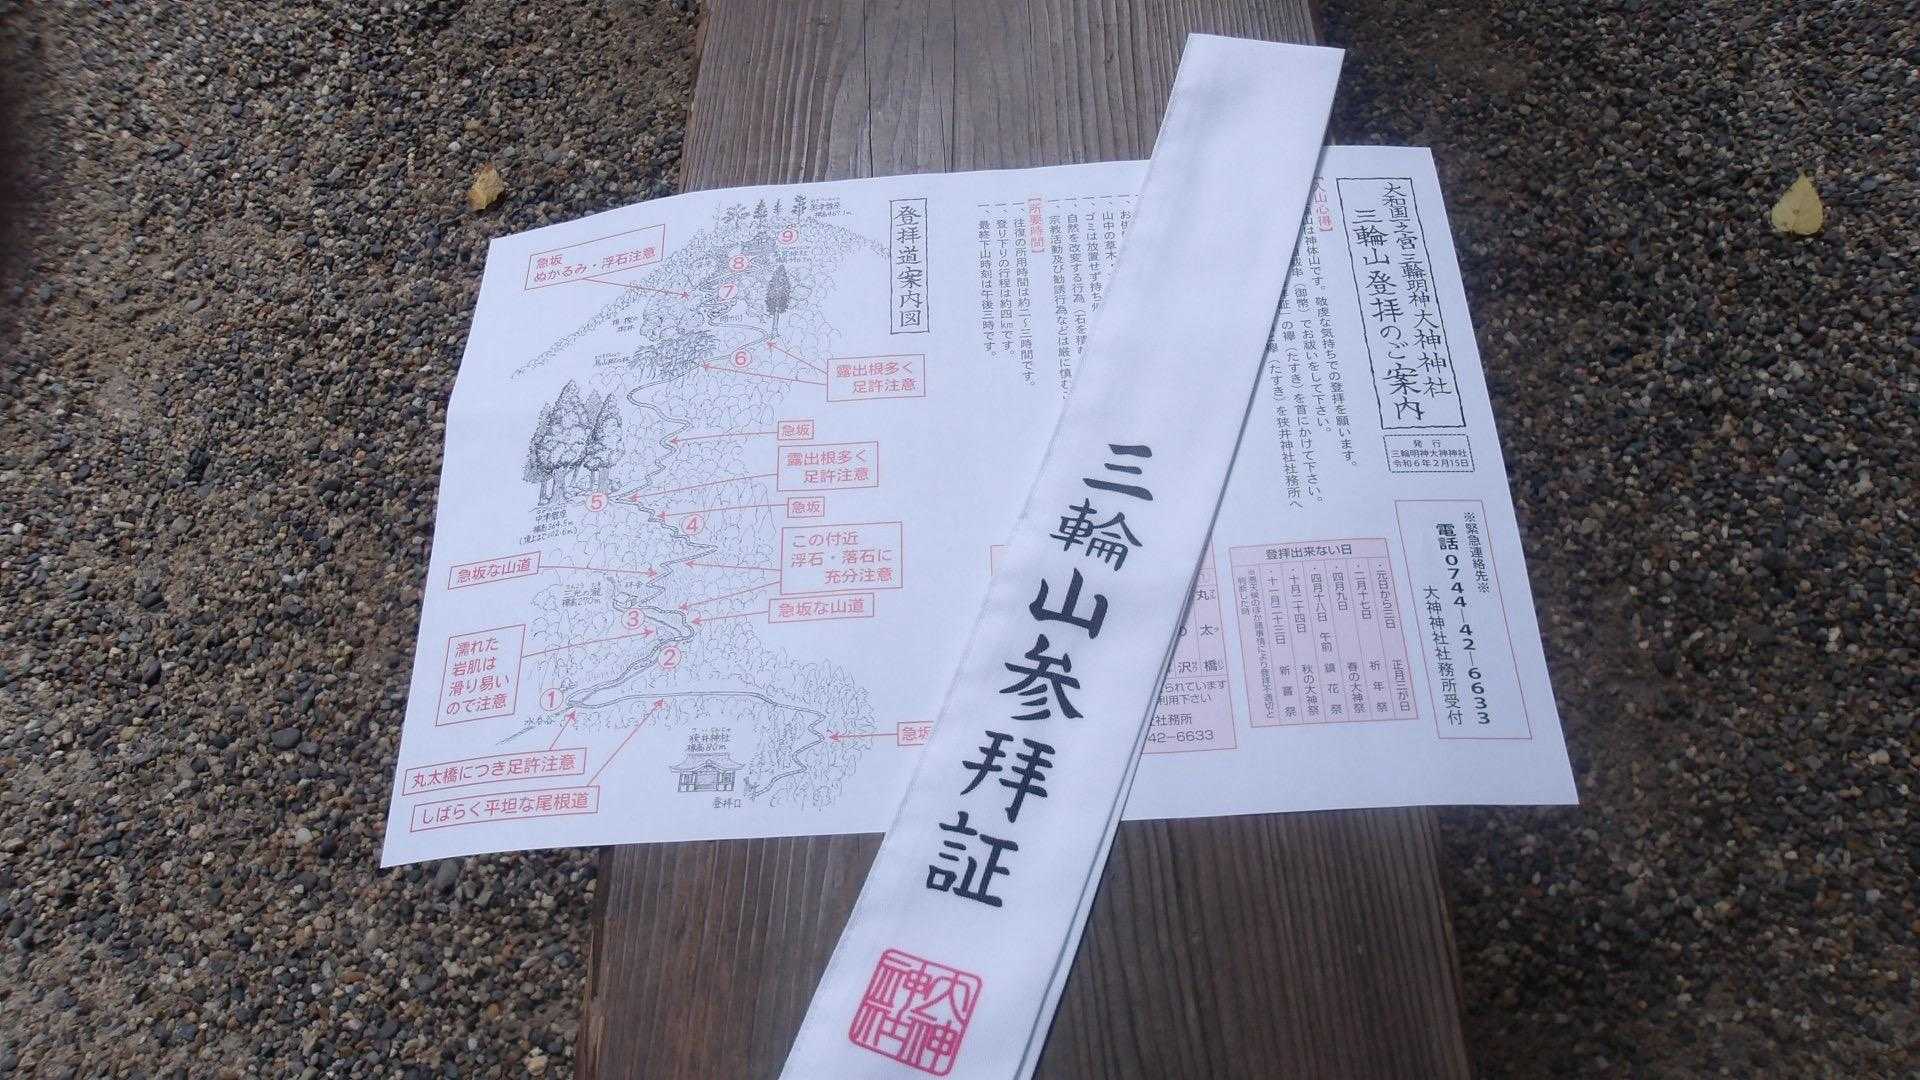 大和国一之宮三輪明神大神神社
三輪山登拝のご案内
発行
三輪明神大神神社
令和6年2月15日
※緊急連絡先※
電話0744-42-6633
大神神社社務所受付
入山心得】
山は神体山です。敬虔な気持ちでの登拝を願います。
串(御幣)でお祓いをして下さい。
証」の襷(たすき)を首にかけて下さい。
襷(たすき)を狭井神社社務所へ
登拝出来ない日
・元日から三日 正月三が日
・二月十七日 祈年祭
・四月九日 春の大神祭
・四月十八日 午前 鎮花祭
・十月二十四日 秋の大神祭
・十一月二十三日 新嘗祭
一、山中の草木・
一、ゴミは放置せず持ち帰
一、自然を改変する行為(石を積
一、宗教活動及び勧誘行為などは厳に慎む
【所要時間】
一、往復の所用時間は約二~三時間です。
一、登り下りの行程は約四㎞です。
一、最終下山時刻は午後三時です。
丸
太
沢橋
られています
利用下さい
社務所
42-6633
登拝道案内図
急坂
ぬかるみ・浮石注意
⑨
⑧
⑦
⑥
露出根多く
足許注意
急坂
露出根多く
足許注意
⑤
中津磐座
標高364.5m
急坂
④
この付近
浮石・落石に
充分注意
急坂な山道
急坂な山道
三光の滝
標高290m
③
濡れた
岩肌は
滑り易い
ので注意
②
①
急坂
狭井神社
標高80m
登拝口
丸太橋につき足許注意
しばらく平坦な尾根道
三輪山参拝証
大神
神社